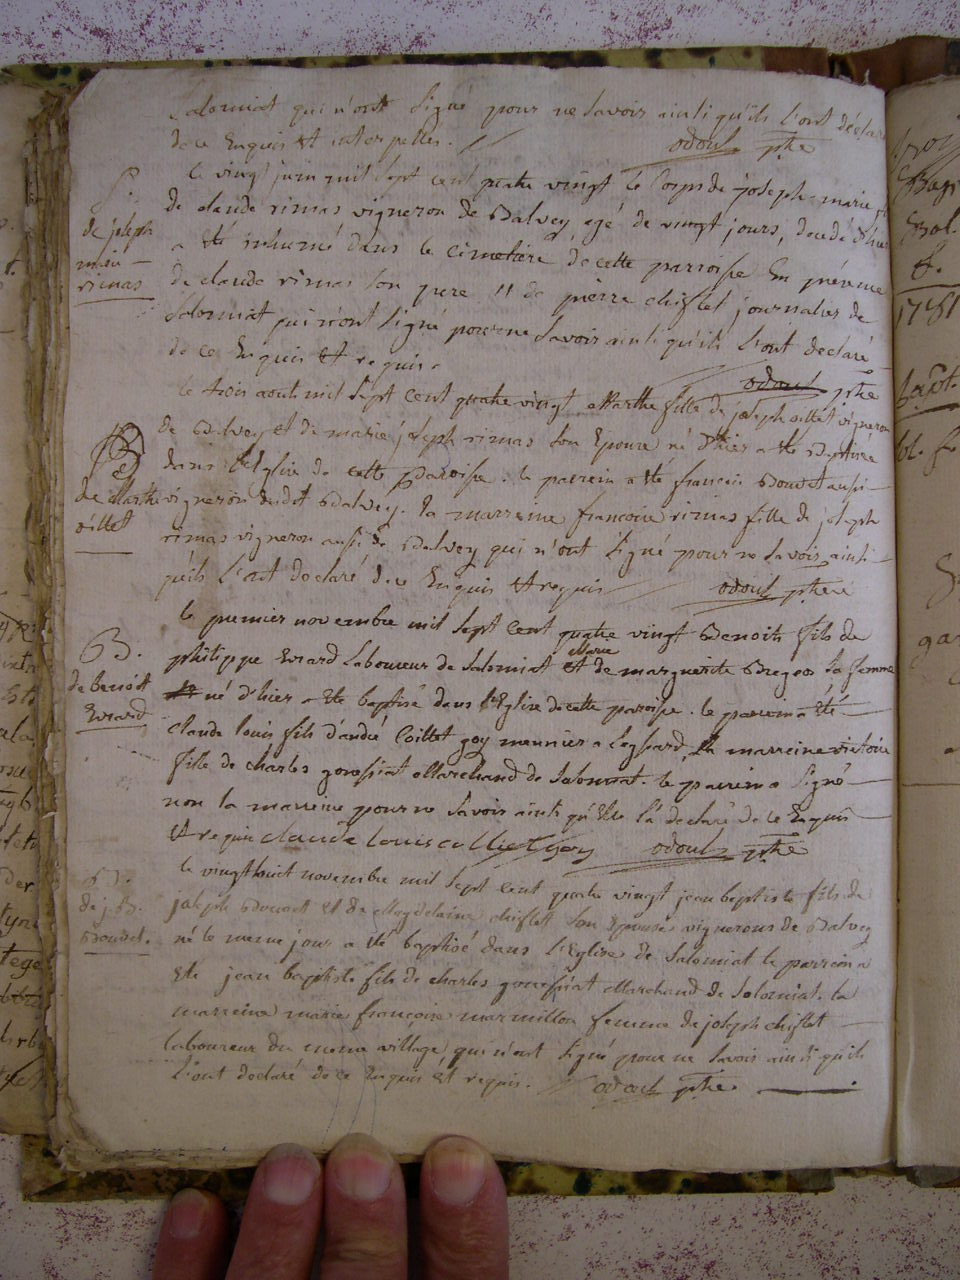 Salomiat qui n'ont signé pour ne savoir ainsi qu'ils l'ont déclaré
de ce Enquis et interpellés. odoul ptre
S.
de joseph
marie
rimas
le vingt juin mil sept cent quatre vingt le Corps de joseph marie fils
de claude rimas vigneron de Balvey agé de vingt jours, decedé d'hier
a été inhumé dans le cimetière de cette parroisse En présence
de claude rimas son pere et de pierre chiflet journalier de
Salomiat qui n'ont signé pour ne savoir ainsi qu'ils l'ont declaré
de ce Enquis Et requis.
odoul ptre
B
de Marthe
oillet
le trois aout mil sept cent quatre vingt Marthe fille de joseph oillet vigneron
de Balvey et de marie joseph rimas son Epouse né d'hier a été Baptisée
dans l'Eglise de cette Paroisse. le parrein a été francois Bouvet aussi
vigneron dudit Balvey. la marreine francoise rimas fille de joseph
rimas vigneron aussi de Balvey qui n'ont signé pour ne savoir ainsi
qu'ils l'ont declaré de ce Enquis Et requis odoul ptre
B.
de benoit
Evrard
le premier novembre mil sept cent quatre vingt Benoit fils de
philippe Evrard Laboureur de Salomiat et de marguerite Marie Bregos sa femme
né d'hier a été baptisé dans l'Eglise de cette paroisse. le parrein a été
claude louis fils d'andré Coillet goy meunier a, la marreine victoire
fille de charles gonessiat Marchand de Salomiat. le parrein a signé
non la marreine pour ne savoir ainsi qu'Elle l'a declaré de ce Enquis
Et requis claude louis colliet goy odoul ptre
B.
de j B.
Boudet.
le vingt huit novembre mil sept cent quatre vingt jean baptiste fils de
joseph Bouvet et de Magdelaine chiflet son Epouse vignerons de Balvey
né le meme jour a été baptisé dans l'Eglise de Salomiat le parrein a
Eté jean baptiste fils de charles gonessiat Marchand de Salomiat. la
marreine marie françoise marmillon femme de joseph chiflet
laboureur du meme village, qui n'ont signé pour ne savoir ainsi qu'ils
l'ont declaré de ce Enquis et requis. odoul ptre
1781